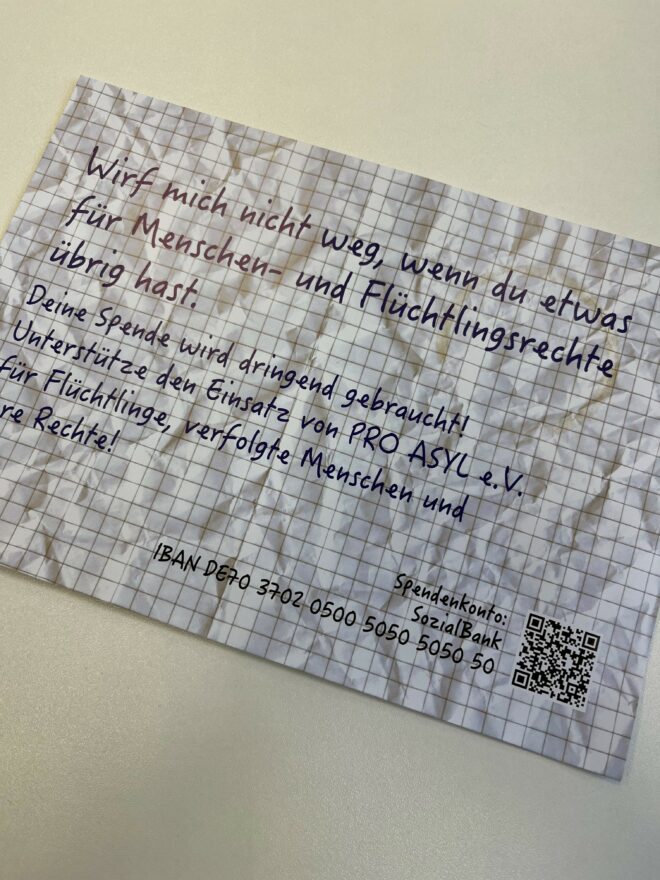 Wirf mich nicht weg, wenn du etwas
für Menschen- und Flüchtlingsrechte
übrig hast.
Deine Spende wird dringend gebraucht!
Unterstütze den Einsatz von PRO ASYL e.V.
für Flüchtlinge, verfolgte Menschen und
re Rechte!
Spendenkonto:
SozialBank
IBAN DE70 3702 0500 5050 5050 50